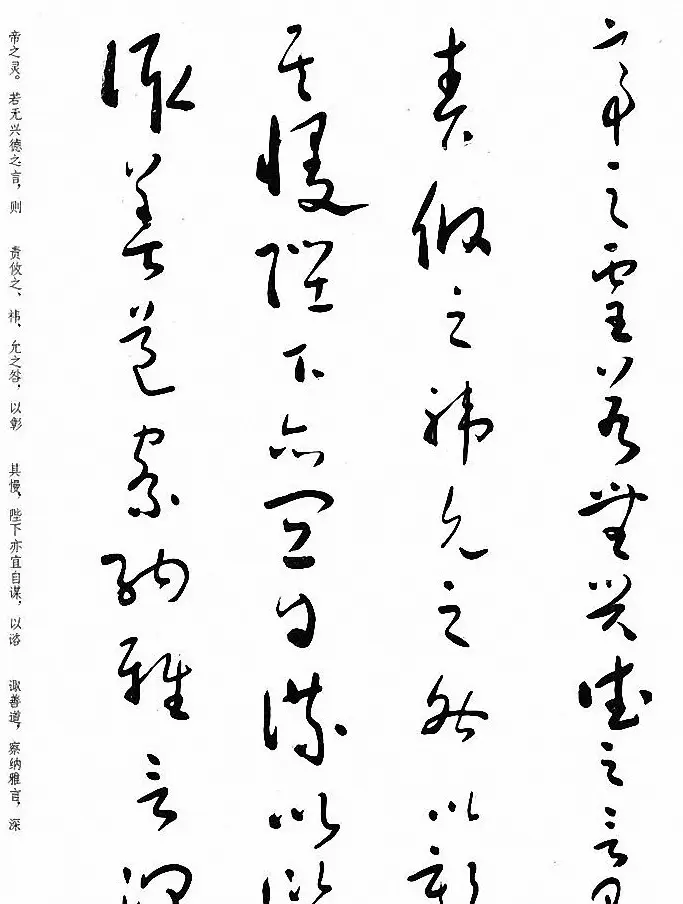 帝之靈若無興德之言則
責攸之禕允之咎以彰
其慢陛下亦宜自謀以諮
諏善道察納雅言深
帝之灵。若无兴德之言，则 责攸之、祎、允之咎，以彰 其慢，陛下亦宜自谋，以谘 诹善道，察纳雅言，深